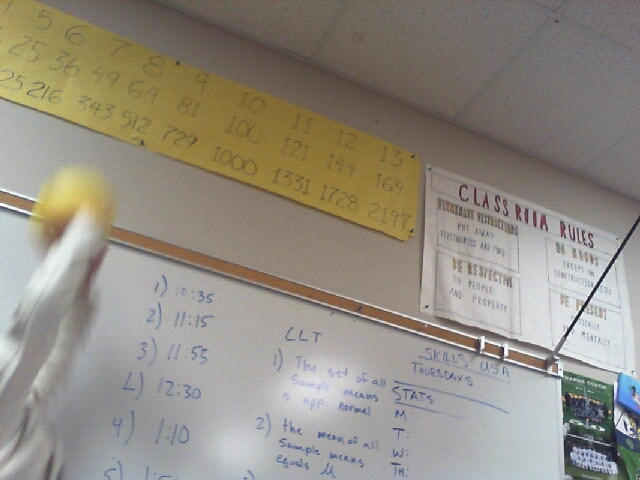 5 6 7 8 9 10 11 12 13
25 36 49 64 81 100 121 144 169
25 216 343 512 729 1000 1331 1728 2197
CLASSROOM RULES
PUT AWAY
ELECTRONICS AND FOOD
BE RESPECTFUL
TO PEOPLE
AND PROPERTY
NO HOODS
EXCEPT ON
BE PRESENT
PHYSICALLY
MENTALLY
1) 10:35
2) 11:15
3) 11:55
L) 12:30
4) 1:10
5)
CLT
1) The set of all
Sample means
is app. normal
2) the mean of all
Sample means
equals μ
SKILLS USA
THURSDAYS
STATS
M:
T:
W:
TH: